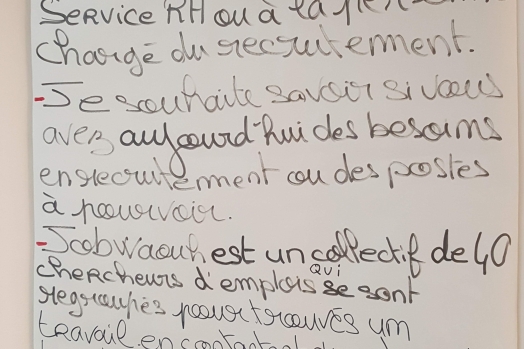 Service RH ou à la personne
chargé du recrutement.
- Je souhaite savoir si vous
avez aujourd'hui des besoins
en recrutement ou des postes
à pourvoir.
- Jobwaouh est un collectif de 40
chercheurs d'emplois qui se sont
regroupés pour trouvés un
travail, en contactant